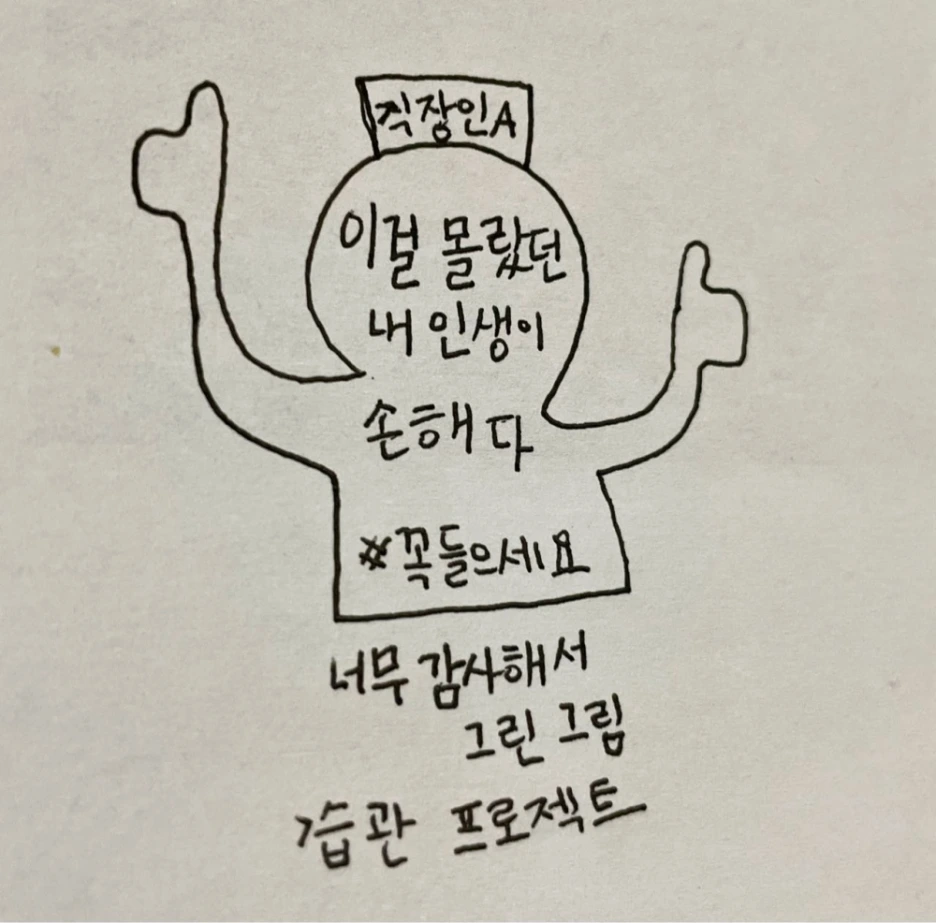 직장인A
이걸 몰랐던
내 인생이
손해다
#꼭들으세요
너무 감사해서
그린 그림
습관 프로젝트